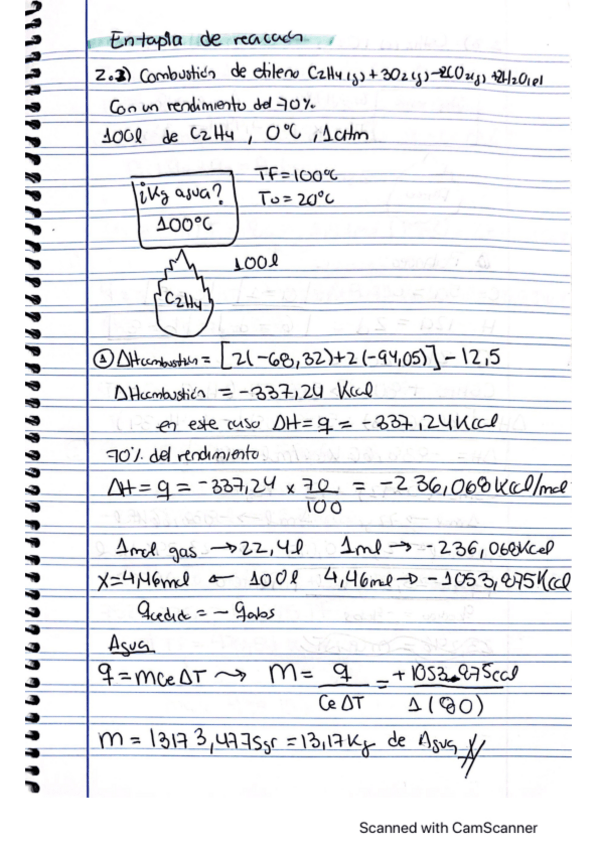 Entapía de reacción
2.3) Combustión de etileno C2H4(g) + 3O2(g) → 2CO2(g) + 2H2O(l)
Con un rendimiento del 70%
100l de C2H4, 0°C, 1atm
TF = 100°C
¿Kg agua?
To = 20°C
100°C
100l
C2H4
① ΔHcombustión = [2(-68,32)+2(-94,05)] - 12,5
ΔHcombustión = -337,24 Kcal
en este caso ΔH = q = -337,24Kcal
70% del rendimiento
ΔH = q = -337,24 x 70/100 = -236,068Kcal/mol
1mol gas → 22,4l 1ml → -236,068Kcal
X=4,46mol ← 100l 4,46mol → -1053,875Kcal
qcedido = - qabs
Agua
q = mCeΔT ⇝ m = q/CeΔT = +1053.875cal/1(80)
m = 13173,4775gr = 13,17Kg de Agua
Scanned with CamScanner